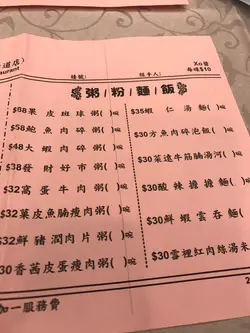 道店)
urant
Xo醬
每碟$10
檯號:
經手人:
粥/粉/麵/飯
$68果皮班球粥( )碗
$58鮑魚肉碎粥( )碗
$48大蝦肉碎粥( )碗
$38發財好市粥( )碗
$32窩蛋牛肉粥( )碗
$32菜皮魚腩瘦肉粥( )碗
$32鮮豬潤肉片粥( )碗
30香茜皮蛋瘦肉粥( )碗
$35蝦仁湯麵(
$30方魚肉碎泡飯(
$30菜遠牛筋腩湯河(
$30酸辣擔擔麵(
$30鮮蝦雲吞麵(
$30雪裡紅肉絲湯米(
加一服務費
2